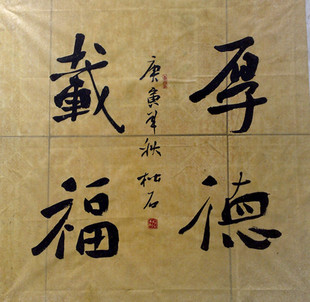 厚德
載福
庚寅年秋 松石